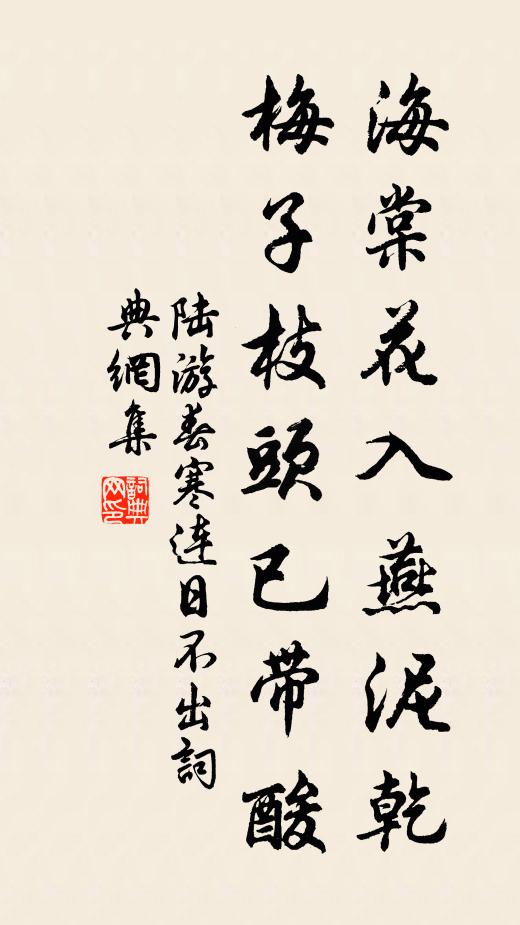 海棠花入燕泥乾
梅子枝頭已帶酸
陆游春寒連日不出詞
典網集
詞典
网印